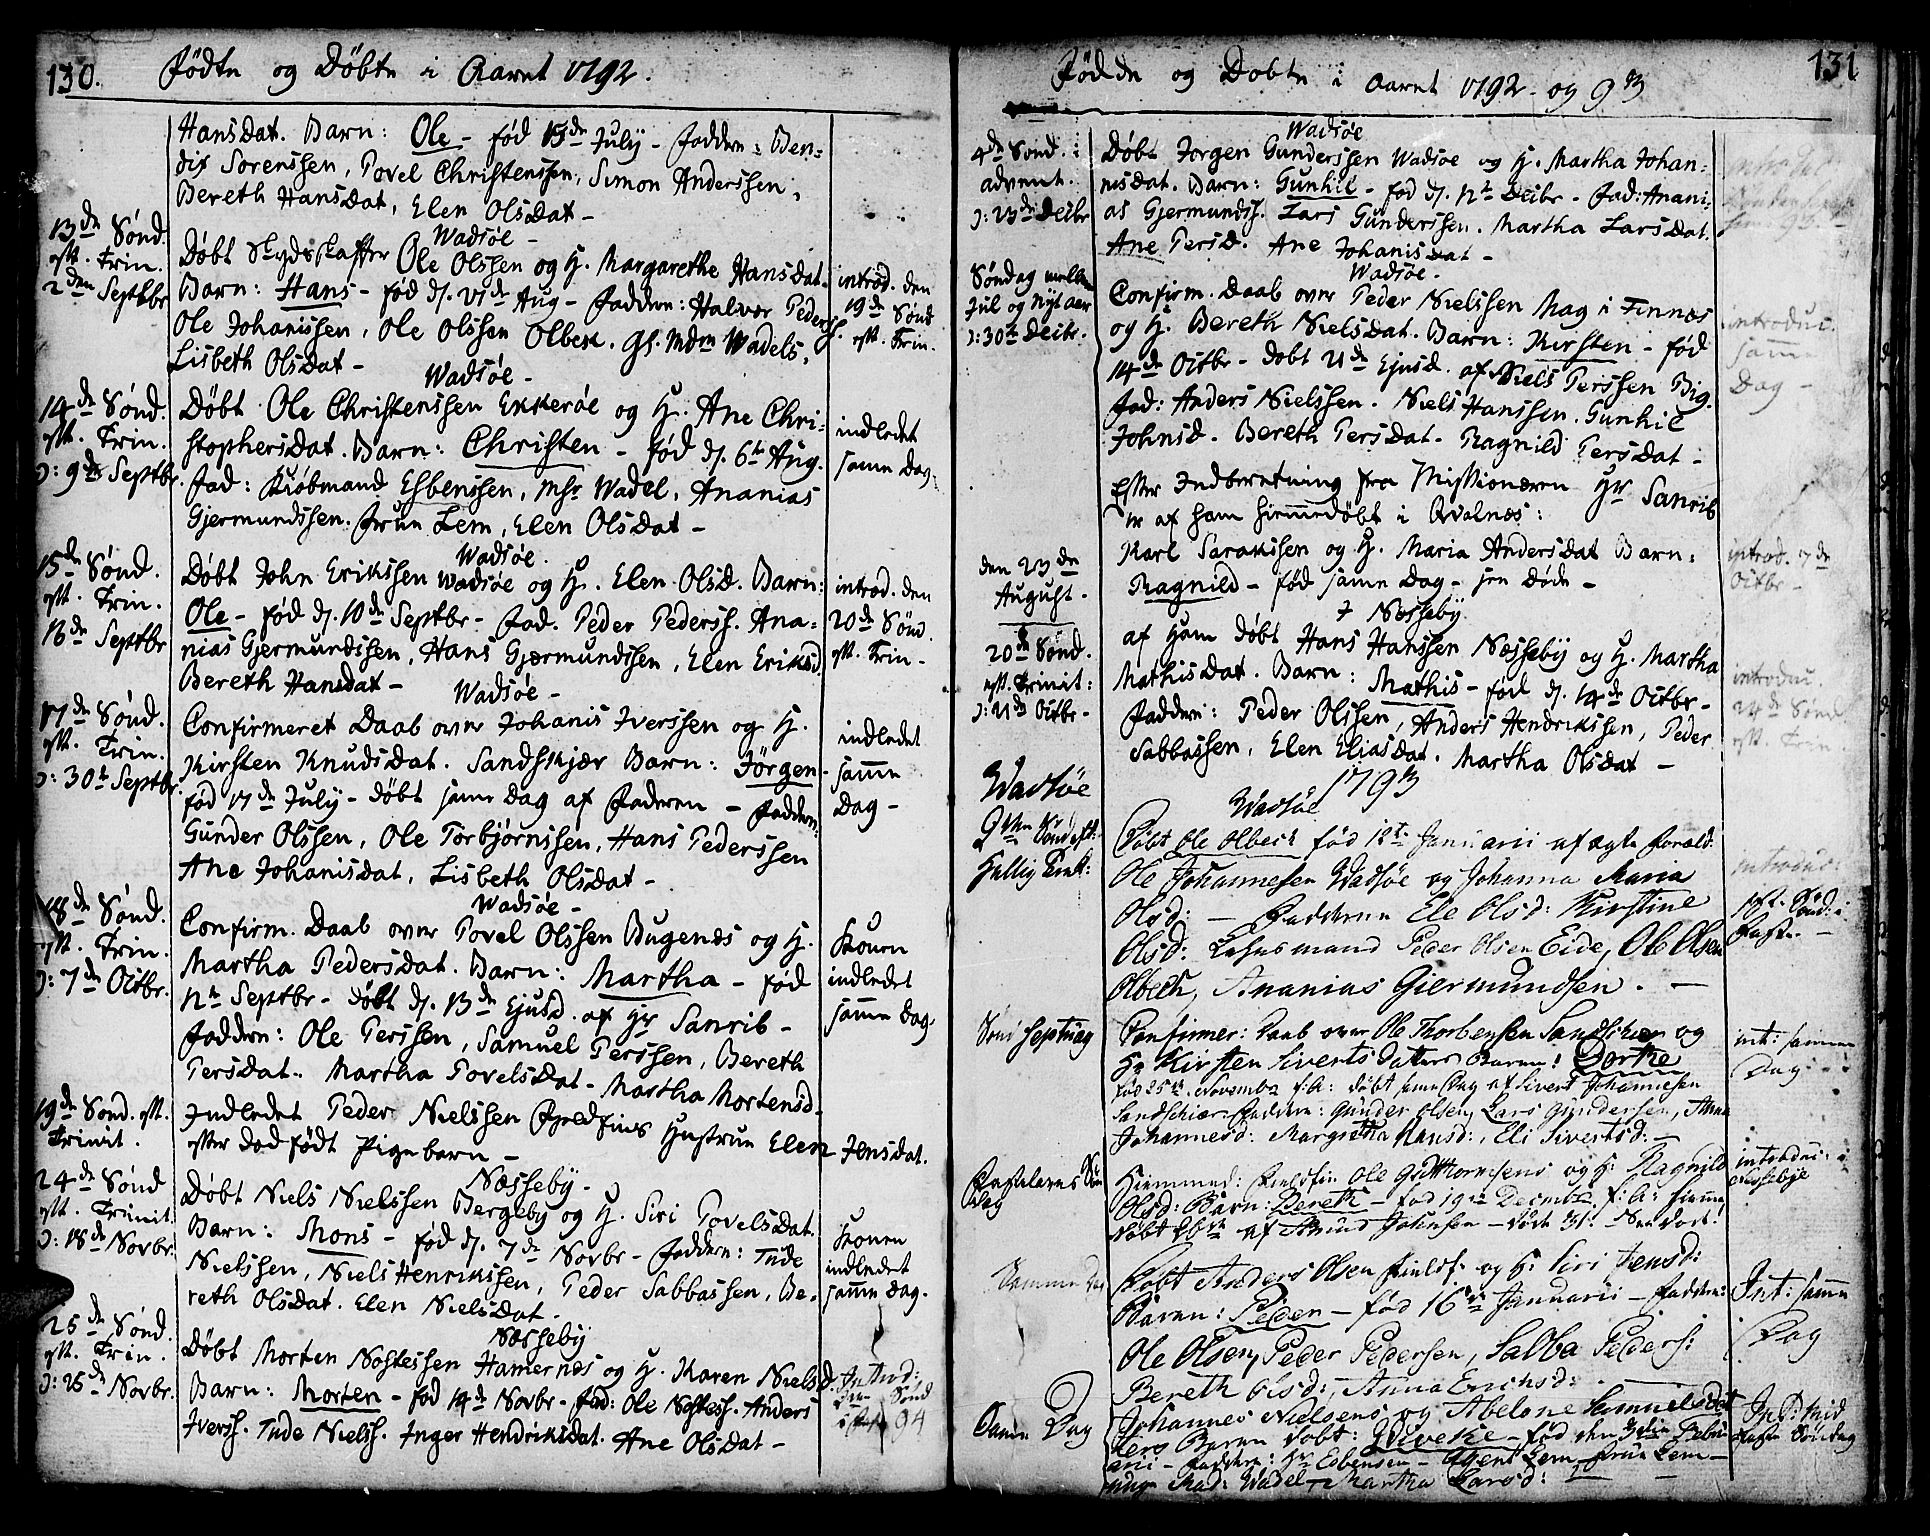 130. Födte og Döbte i Aaret 1792.
HansDat. Barn: Ole - fød 15de July - Faddere: Ben=
dix Sorenssen, Povel Christenssen, Simon Anderssen,
Bereth HansDat, Elen OlsDat -
13de Sönd.
eft. Trin.
2den Septbr
Wadsöe -
Döbt Skydsskaffer Ole Olssen og H. Margarethe HansDat.
Barn: Hans - fød d. 21de Aug - Faddere: Halvor Pederss.
Ole Johanissen, Ole Olssen Olbek. Gl. Mdm Wadels,
Lisbeth OlsDat -
introd. den
19de Sönd
eft. Trin.
14de Sönd.
eft. Trin.
ɔ: 9de Septbr.
Wadsöe -
Döbt Ole Christenssen Ekkeröe og H: Ane Chri-
stophersDat. Barn: Christen - fød d. 6te Aug.
Fad: Kiöbmand Esbenssen, Msr Wadel, Ananias
Gjermundssen. Frue Lem, Elen OlsDat -
indledet
samme Dag.
15de Sönd.
eft. Trin.
16de Septbr
Wadsöe.
Döbt John Erikssen Wadsöe og H. Elen OlsD. Barn:
Ole - fød d. 10de Septbr - Fad. Peder Pederss. Ana-
nias Gjermundssen, Hans Gjermundssen, Elen EriksD.
Bereth HansDat -
introd. den
20de Sönd.
eft. Trin -
17de Sönd.
eft. Trin.
ɔ: 30te Septbr.
Wadsöe -
Confirmeret Daab over Johanis Iverssen og H.
Kirsten KnudsDat. Sandskjær Barn: Jörgen -
fød 17de July - döbt samme Dag af Faderen - Faddere:
Gunder Olssen, Ole Torbjörnssen, Hans Pederssen
Ane JohanisDat, Lisbeth OlsDat -
indledet
samme
Dag -
18de Sönd.
eft. Trin.
ɔ: 7de Octbr.
Wadsöe -
Confirm. Daab over Povel Olssen Bugenæs og H.
Martha PedersDat. Barn: Martha - fød
12te Septbr - döbt d. 13de Ejusd. af Hr Sanrib -
Faddere: Ole Perssen, Samuel Perssen, Bereth
PersDat. Martha PovelsDat - Martha MortensD.
Konen
indledet
samme Dag.
19de Sönd. eft.
Trinit.
Indledet Peder Nielssen Hustrue Elen JensDat.
efter dödfödt Pigebarn -
24de Sönd
eft. Trinit
ɔ: 18de Novbr.
Næsseby -
Döbt Niels Nielssen Bergeby og H. Siri PovelsDat.
Barn: Mons - fød d. 7de Novbr - Faddere: Tude
Nielssen, Niels Henrikssen, Peder Sabbassen, Be-
reth OlsDat. Elen NielsDat -
Konen
indledet
samme Dag.
25de Sönd.
eft. Trin.
ɔ: 25de Novbr.
Næsseby
Döbt Morten Nostessen Hamernæs og H. Karen NielsD.
Barn: Morten - fød 14de Novbr - Fad: Ole Nostess. Anders
Iverss. Tude Nielss. Inger HendriksDat. Ane OlsDat -
Introd:
Sönd
94
Födde og Döbte i Aaret 1792 - og 93 131
4de Sönd. i
advent.
ɔ: 23de Decbr
Wadsöe
Döbt Jorgen Gunderssen Wadsöe og H. Martha Johan-
nisDat. Barn: Gunhil - fød d. 12te Decbr - Fad: Anani-
as Gjermundss. Lars Gunderssen. Martha LarsDat.
Ane PersD. Ane JohanisDat -
Söndag mellem
Jul og Nyt aar
ɔ: 30te Decbr.
Wadsöe -
Confirm. Daab over Peder Nielssen Mag i Finnæs
og H. Bereth NielsDat. Barn: Kirsten - fød
14de Octbr - döbt 21de Ejusd. af Niels Perssen Big.
Fad: Anders Nielssen. Niels Hanssen. Gunhil
JohnsD. Bereth PersDat. Ragnild PersDat -
introduc.
samme
Dag -
Efter Indberetning fra Missionæren Hr Sanrib
er af ham hiemmedöbt i Qvalnæs:
den 23de
August -
Karl Sarakssen og H. Maria AndersDat Barn:
Ragnild - fød samme Dag - som döde -
introd. 7de
Octbr -
20de Sönd.
eft. Trinit:
ɔ: 21de Octbr -
I Næsseby
af ham döbt Hans Hanssen Næsseby og H. Martha
MathisDat. Barn: Mathis - fød d. 14de Octbr -
Faddere: Peder Olssen, Anders Hendrikssen, Peder
Sabbassen, Elen EliasDat. Martha OlsDat -
introduc.
24de Sönd
eft. Trin
1793
Wadsöe
Sönd eft:
Hellig
Wadsöe
Döbt Ole Olbeck fød 12te Januarii af ægte Foræld:
Ole Johannesen Wadsöe og Johanna Maria
Olsd: - Faddere Ele Olsd: Kirstine
Olsd: Lehnsmand Peder Olsen Eide, Ole Olsen
Olbeck, Ananias Giermundsen. -
introduc:
1ste Sönd: i
Faste. -
Sönd Septuag
Confirmer: Daab over Ole Thorbensen Sandskier og
H: Kirsten Sivertsdatters Barn: Dorthe
fød 25de November f: A: döbt samme Dag af Sivert Johannesen
Sandschiær Faddere: Gunder Olsen, Lars Gundersen, Anna
Johannesd: Margretha Hansd:, Eli Sivertsd: -
int: samme
Dag -
Fastelavns Sön
Dag
Hiemmed: Ole og H: Ragnild
Olsd: Barn: Bereth - fød 19de Decembr f: A: hiemme
döbt af Amund Johnsen - död
introduc: i
Næssebye
Samme Dag
Döbt Anders Olsen og H: Siri Jensd:
Barn: Peder - fød 16de Januarii - Faddere:
Ole Olsen, Peder Pedersen, Salba Peders:
Bereth Olsd:, Anna Erichsd: -
Int: samme
Dag
Samme Dag
Johannes Nielsens og Abelone Samuelsdat
ters Barn döbt: Wiveke - fød den 3die Febru
arii - Faddere: Hr Esbensen - Agent Lem - Frue Lem -
Mad: Wadel - Martha Larsd:
Int: Mid
Faste Söndag